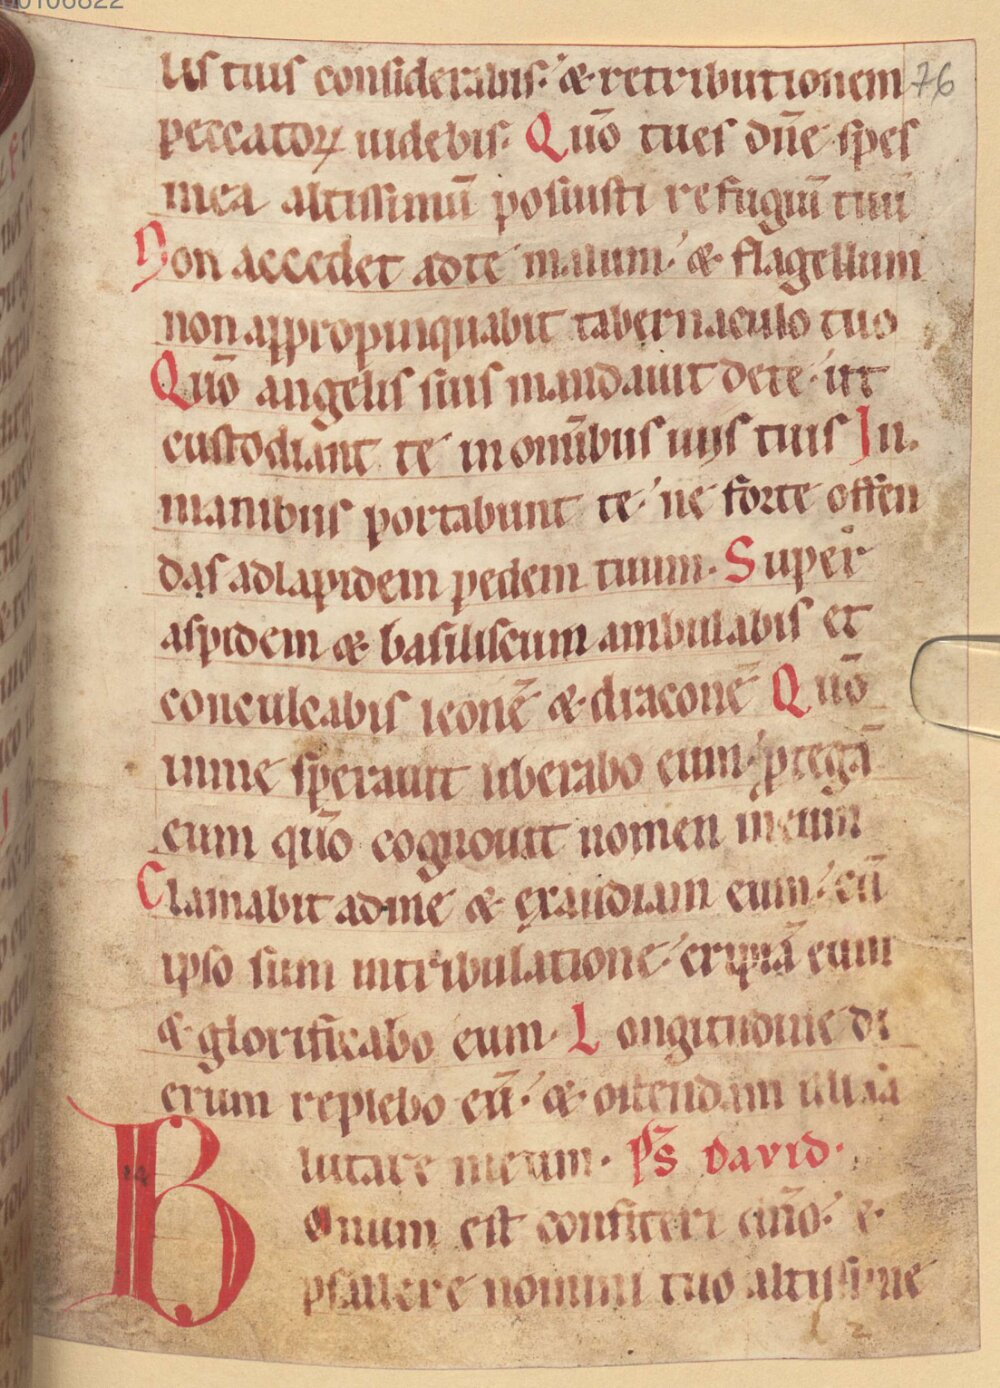 00106822
76
lis tuis considerabis· & retributionem
peccatoꝝ uidebis· Quō tu es dn̄e spes
mea altissimū posuisti refugiū tuū
Non accedet ad te malum· & flagellum
non appropinquabit tabernaculo tuo
Quō angelis suis mandauit de te· ut
custodiant te in om̄ibus uijs tuis In
manibus portabunt te· ne forte offen
das ad lapidem pedem tuum· Super
aspidem & basiliscum ambulabis et
conculcabis leonē & draconē Quō
in me sperauit liberabo eum· ꝓtegā
eum quō cognouit nomen meum
Clamabit ad me & ęxaudiam eum· cū
ipso sum in tribulatione· eripiā eum
& glorificabo eum· Longitudine di
erum replebo eū· & ostendam illi sa
lutare meum· ps̄ david·
Bonum est confiteri dn̄o· &
psallere nomini tuo altissime